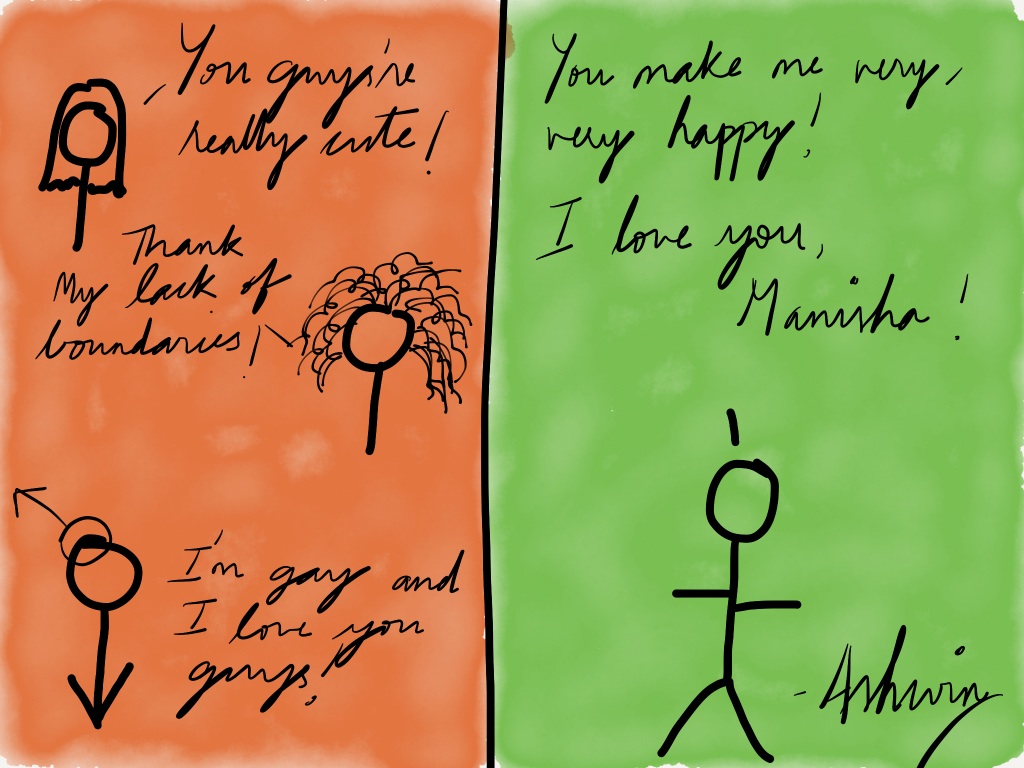 You guys're
really cute!
Thank
My lack of
boundaries!
I'm gay and
I love you
guys!
You make me very,
very happy!
I love you,
Manisha!
- Ashwin